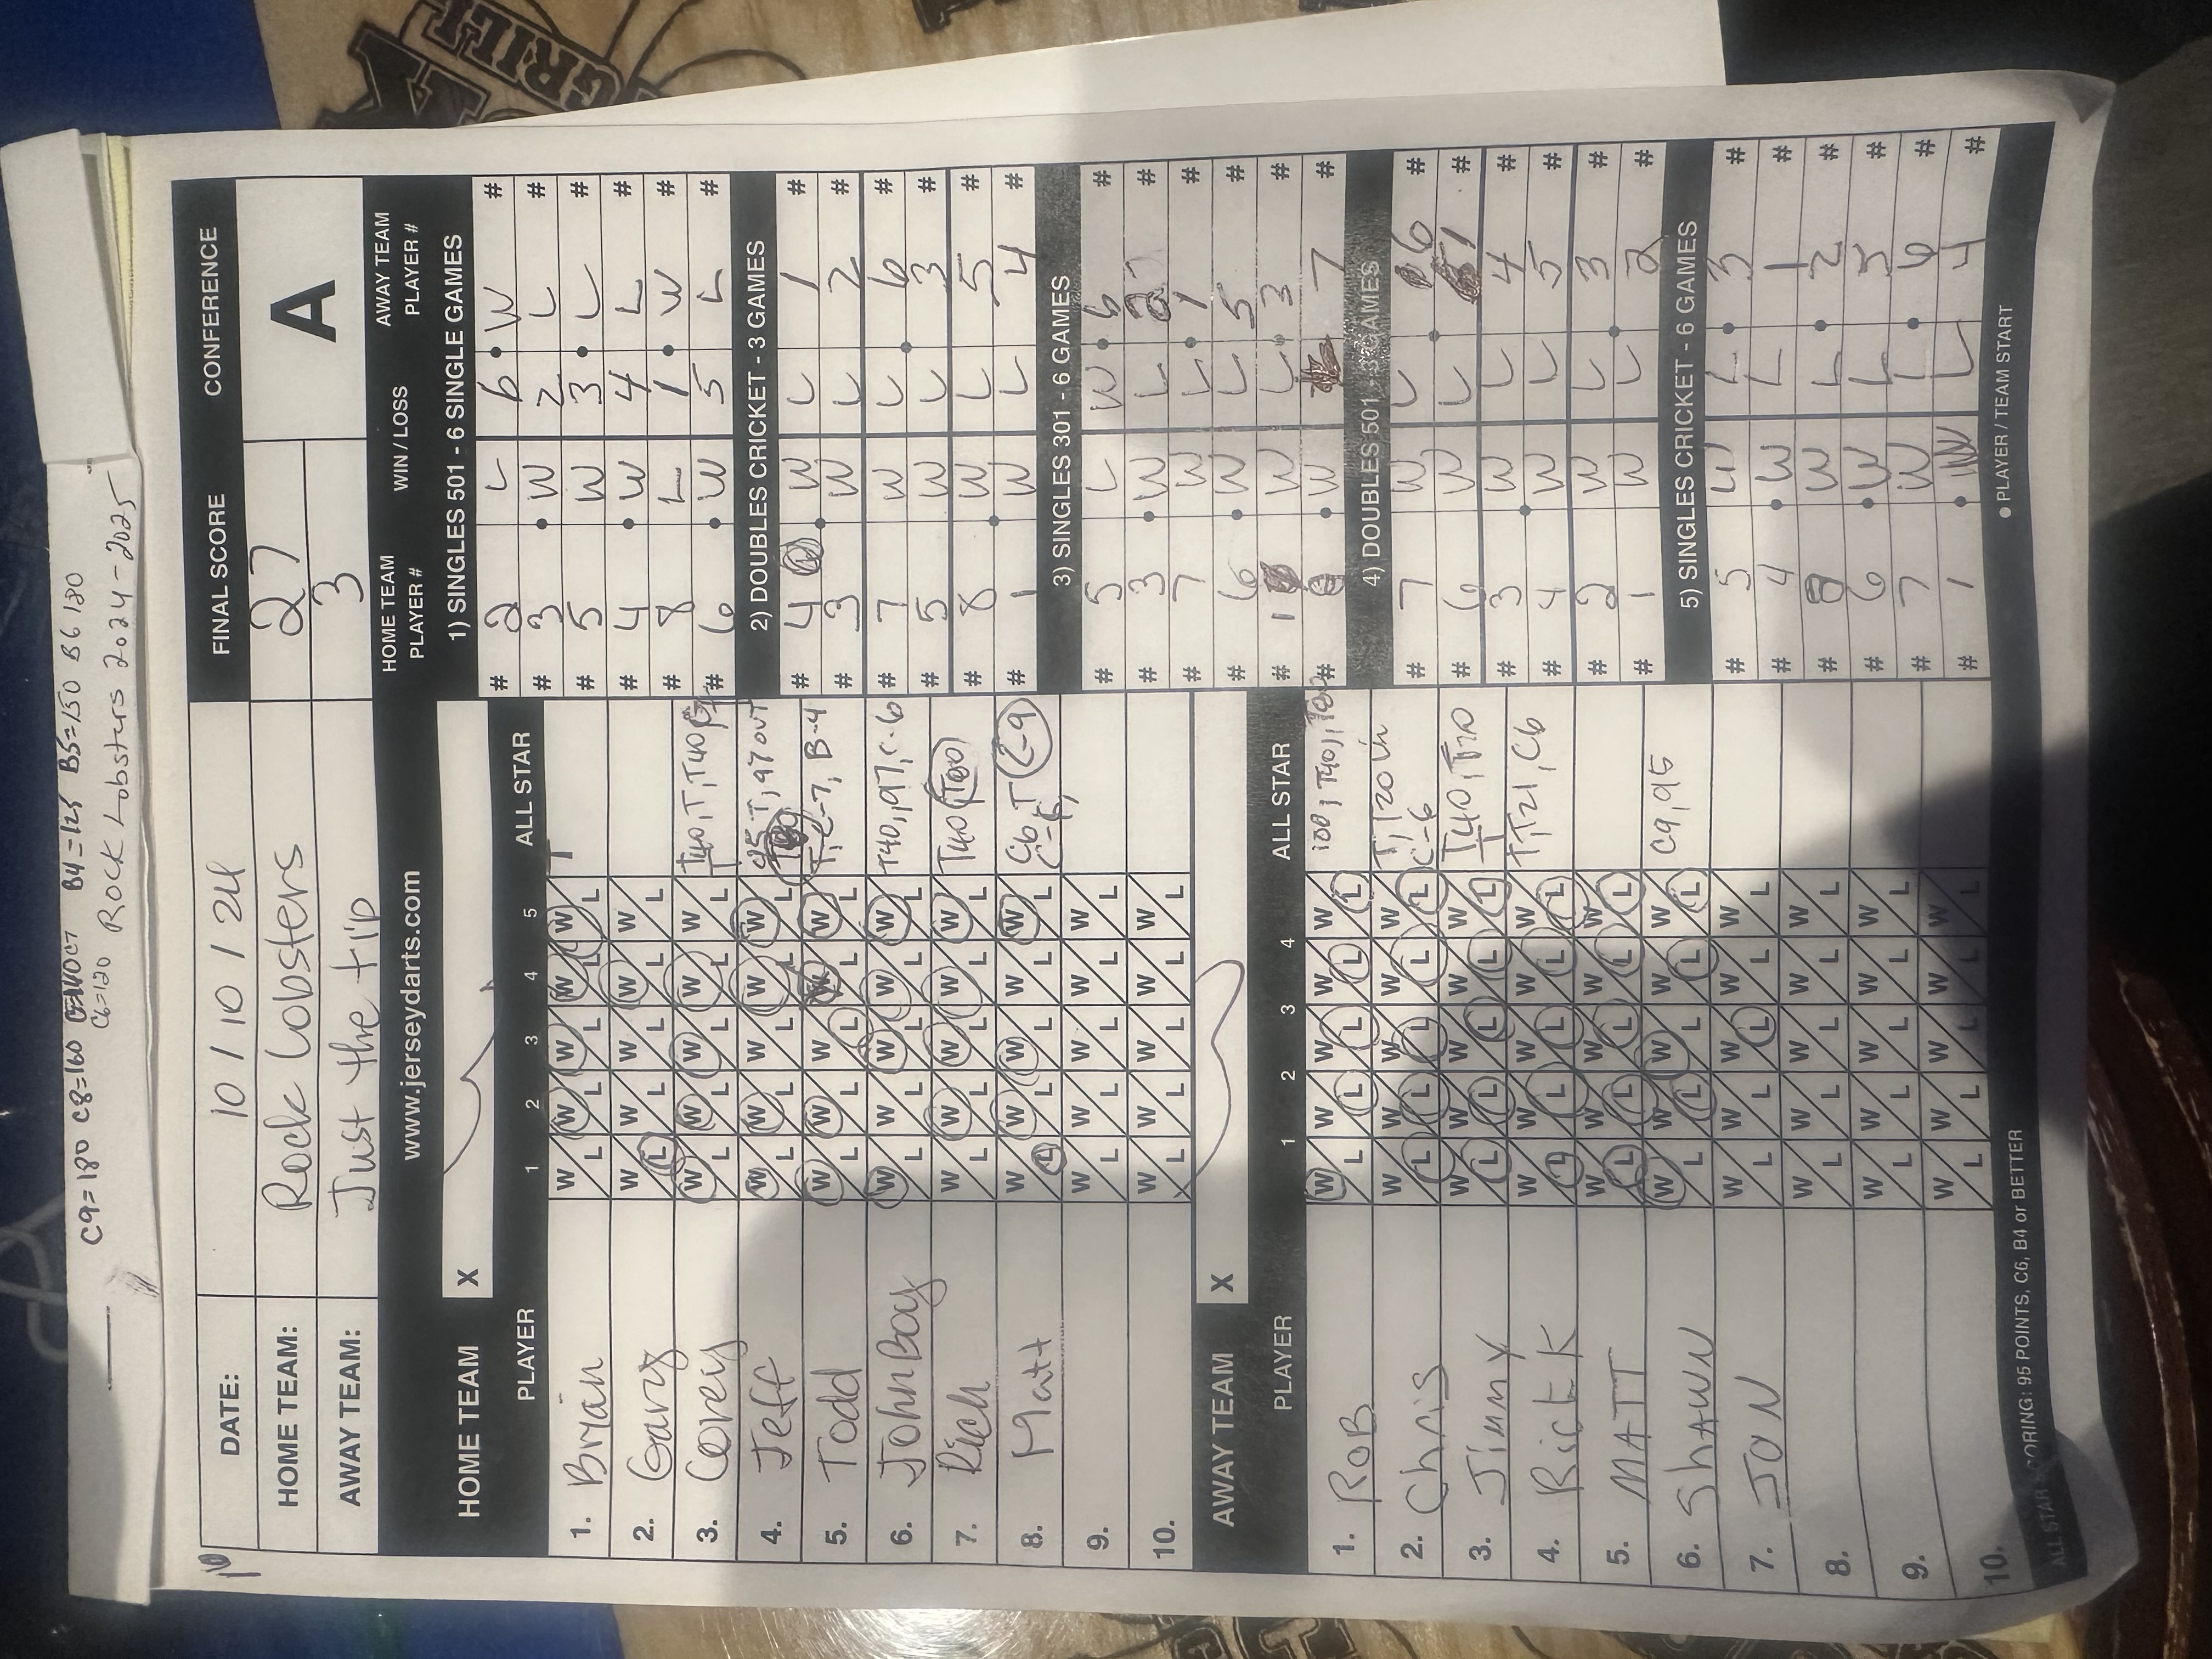 C9=180 C8=160 B4=125 B5=150 B6 180
C6=120 Rock Lobsters 2024-2025
DATE: 10 / 10 / 24 FINAL SCORE CONFERENCE
HOME TEAM: Rock Lobsters 27 A
AWAY TEAM: Just the tip 3
www.jerseydarts.com
HOME TEAM X
PLAYER 1 2 3 4 5 ALL STAR
1. Brian W L W L W L W L W L T
2. Gary W L W L W L W L W L
3. Corey W L W L W L W L W L T40, T, T40
4. Jeff W L W L W L W L W L 95-T, 97 out
5. Todd W L W L W L W L W L T, C-7, B-4
6. John Boy W L W L W L W L W L T40, 97, C-6
7. Rich W L W L W L W L W L T40, T80
8. Matt W L W L W L W L W L C6, T C-9
C-6,
9. W L W L W L W L W L
10. W L W L W L W L W L
AWAY TEAM X
PLAYER 1 2 3 4 ALL STAR
1. ROB W L W L W L W L W L 100, T40,
2. Chris W L W L W L W L W L T, T20 in
C-6
3. Jimmy W L W L W L W L W L T40, T20
4. Rick W L W L W L W L W L T, T21, C6
5. MATT W L W L W L W L W L
6. ShAWN W L W L W L W L W L C9, 95
7. JON W L W L W L W L W L
8. W L W L W L W L W L
9. W L W L W L W L W L
10. W L W L W L W L W L
ALL STAR SCORING: 95 POINTS, C6, B4 or BETTER
HOME TEAM PLAYER # WIN / LOSS AWAY TEAM PLAYER #
1) SINGLES 501 - 6 SINGLE GAMES
# 2 L 6 W #
# 3 W 2 L #
# 5 W 3 L #
# 4 W 4 L #
# 8 L 1 W #
# 6 W 5 L #
2) DOUBLES CRICKET - 3 GAMES
# 4 W L 1 #
# 3 W L 2 #
# 7 W L 6 #
# 5 W L 3 #
# 8 W L 5 #
# 1 W L 4 #
3) SINGLES 301 - 6 GAMES
# 5 L W 6 #
# 3 W L 2 #
# 7 W L 1 #
# 6 W L 5 #
# 1 W L 3 #
# 8 W 7 #
4) DOUBLES 501 - 3 GAMES
# 7 W L 6 #
# 6 W L 1 #
# 3 W L 4 #
# 4 W L 5 #
# 2 W L 3 #
# 1 W L 2 #
5) SINGLES CRICKET - 6 GAMES
# 5 W L 3 #
# 4 W L 1 #
# 8 W L 2 #
# 6 W L 5 #
# 7 W L 6 #
# 1 W L 4 #
PLAYER / TEAM START
GRILL